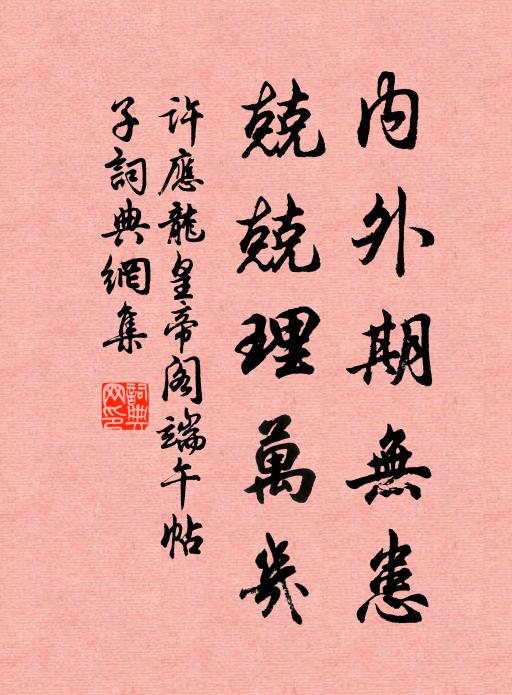 內外期無患
兢兢理萬幾
許應龍皇帝閣端午帖
子詞典網集
詞典網印